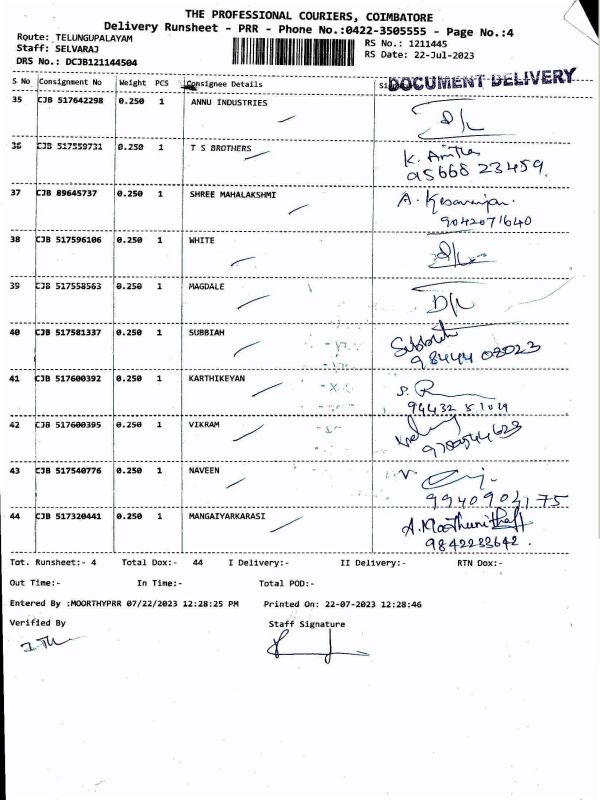 THE PROFESSIONAL COURIERS, COIMBATORE
Delivery Runsheet - PRR - Phone No.:0422-3505555 - Page No.:4
Route: TELUNGUPALAYAM
RS No.: 1211445
Staff: SELVARAJ
RS Date: 22-Jul-2023
DRS No.: DCJB121144504
DOCUMENT DELIVERY
S No Consignment No Weight PCS Consignee Details
35 CJB 517642298 0.250 1 ANNU INDUSTRIES
D/L
36 CJB 517559731 0.250 1 T S BROTHERS
K. Anitha
95668 23459
37 CJB 89645737 0.250 1 SHREE MAHALAKSHMI
A. Kesavarajan
9042071640
38 CJB 517596106 0.250 1 WHITE
D/L
39 CJB 517558563 0.250 1 MAGDALE
D/L
40 CJB 517581337 0.250 1 SUBBIAH
98444 08023
41 CJB 517600392 0.250 1 KARTHIKEYAN
94432 51019
42 CJB 517600395 0.250 1 VIKRAM
43 CJB 517540776 0.250 1 NAVEEN
9940904175
44 CJB 517320441 0.250 1 MANGAIYARKARASI
9842233642.
Tot. Runsheet:- 4 Total Dox:- 44 I Delivery:- II Delivery:- RTN Dox:-
Out Time:- In Time:- Total POD:-
Entered By :MOORTHYPRR 07/22/2023 12:28:25 PM Printed On: 22-07-2023 12:28:46
Verified By Staff Signature